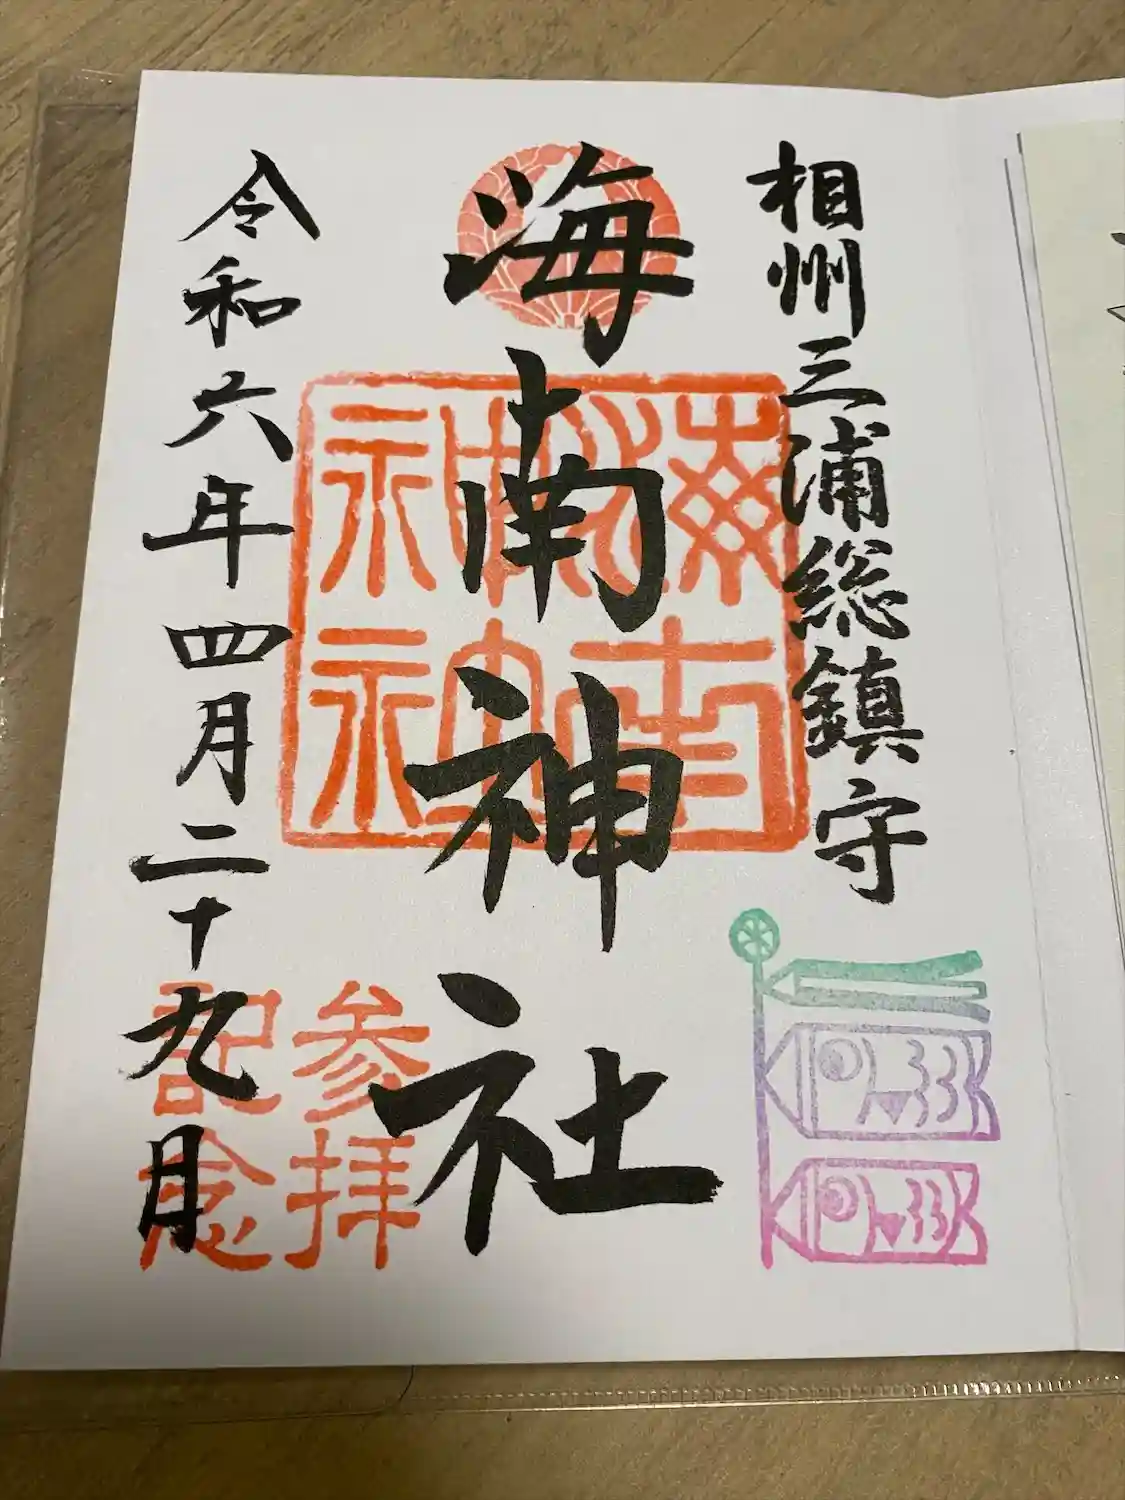 相州三浦総鎮守
海南神社
海南神社
参拝
記念
令和六年四月二十九月